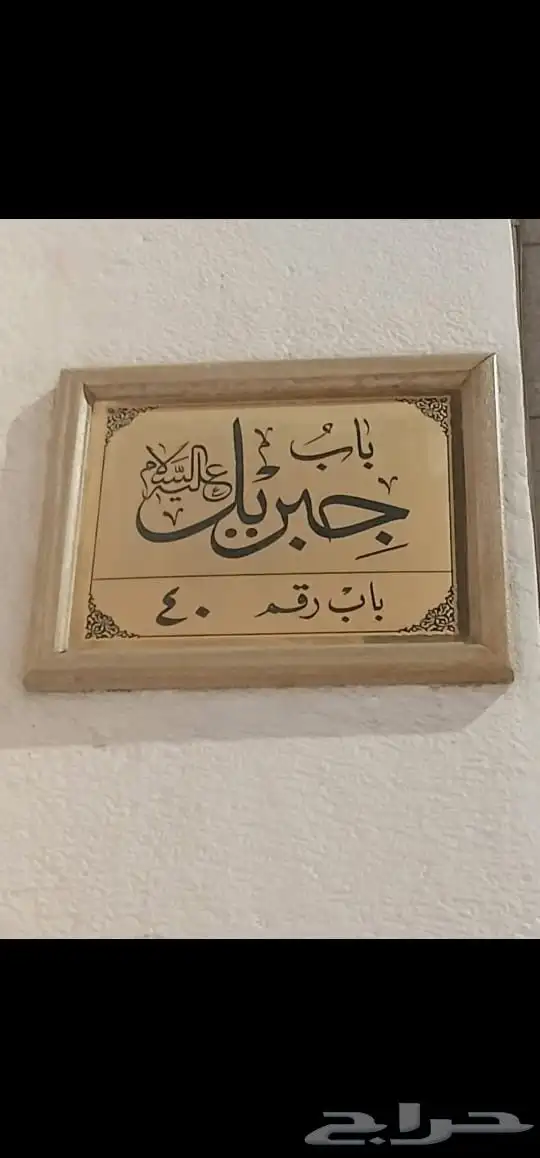 باب
جبريل عليه السلام
باب رقم ٤٠
حراج